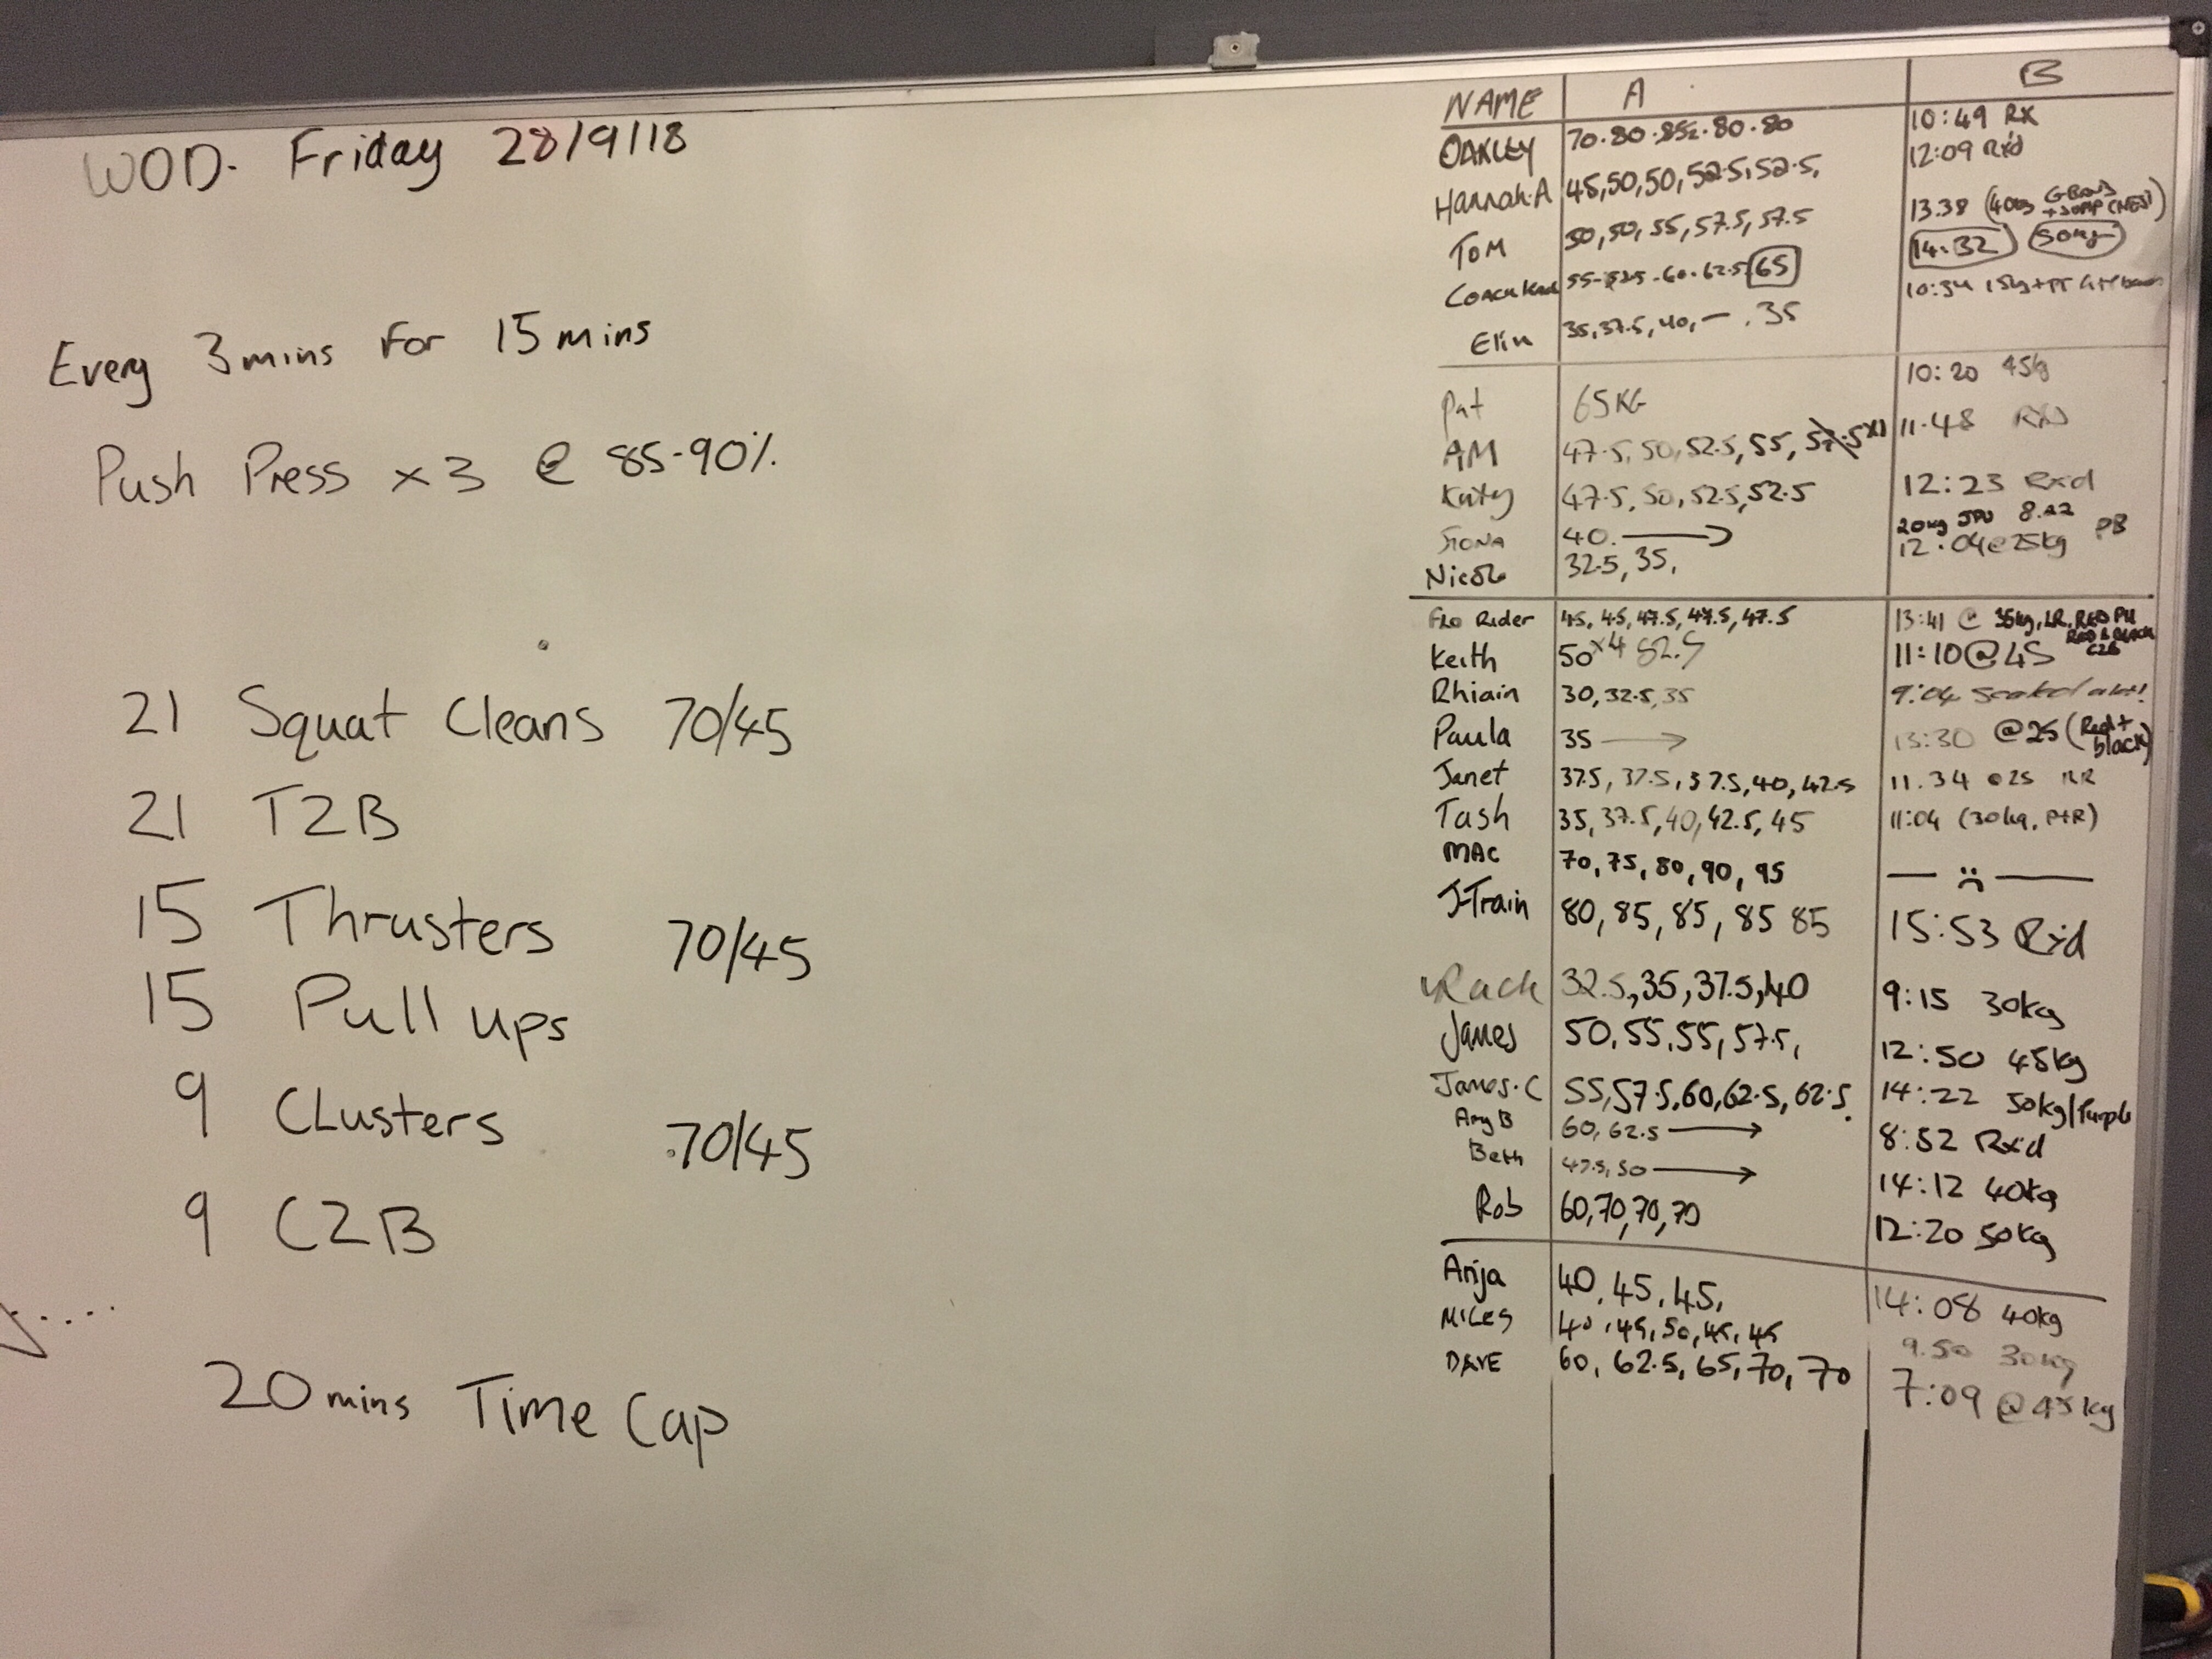 WOD. Friday 28/9/18
Every 3mins for 15mins
Push Press x3 @ 85-90%
21 Squat Cleans 70/45
21 T2B
15 Thrusters 70/45
15 Pull ups
9 CLusters 70/45
9 C2B
20mins Time Cap
NAME A B
OAKLEY 70.80. .80.80 10:49 RX
Hannah.A 45,50,50,52.5,52.5, 12:09 Rx'd
TOM 50,50,55,57.5,57.5 13.38
Coach 55- -60.62.5 65 14:32 50kg
Elin 35,37.5,40,— .35 10:34
Pat 65KG 10:20 45kg
AM 47.5, 50, 52.5, 55, 57.5 x1 11.48
Katy 47.5, 50, 52.5, 52.5 12:23 Rxd
FIONA 40. → 20kg 8.22
Nicole 32.5, 35, 12.04@25kg PB
FLO Rider 45, 45, 47.5, 47.5, 47.5 13:41 @ 35kg,
Keith 50x4 52.5 11:10@45
Rhiain 30, 32.5, 35 9:04 Scaled
Paula 35 → 13:30 @25 (Red+ black)
Janet 37.5, 37.5, 37.5, 40, 42.5 11.34 @25
Tash 35, 37.5, 40, 42.5, 45 11:04 (30kg, P+R)
MAC 70, 75, 80, 90, 95 — :( —
J-Train 80, 85, 85, 85 85 15:53 Rx'd
Rach 32.5, 35, 37.5, 40 9:15 30kg
James 50, 55, 55, 57.5, 12:50 45kg
James.C 55, 57.5, 60, 62.5, 62.5. 14:22 50kg/Purple
Amy B 60, 62.5 → 8:52 Rx'd
Beth 47.5, 50 → 14:12 40kg
Rob 60, 70, 70, 70 12:20 50kg
Anja 40, 45, 45, 14:08 40kg
MILES 40, 45, 50, 45, 45 9.50 30kg
DAVE 60, 62.5, 65, 70, 70 7:09 @45kg